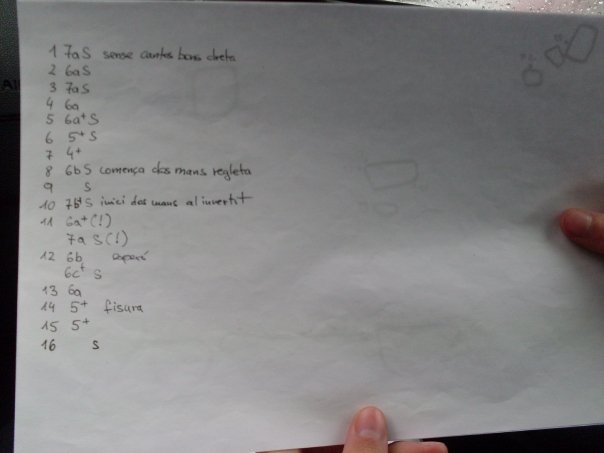 1 7a S sense cantos bons dreta
2 6a S
3 7a S
4 6a
5 6a+ S
6 5+ S
7 4+
8 6b S comença dos mans regleta
9 S
10 7b+ S inici dos mans al invertit
11 6a+ (!)
7a S (!)
12 6b
6c+ S
13 6a
14 5+ fisura
15 5+
16 S